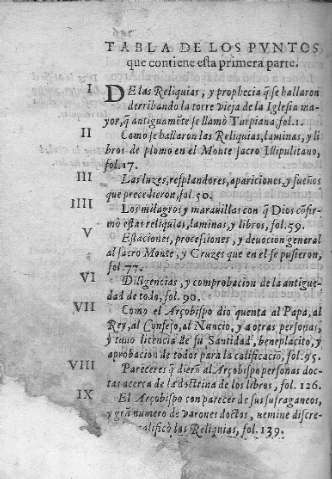 TABLA DE LOS PVNTOS,
que contiene esta primera parte.
I DE las Reliquias, y prophecia q̃ se hallaron
derribando la torre vieja de la Iglesia ma
yor, q̃ antiguamẽte se llamò Turpiana, fol. 1.
II Como se hallaron las Reliquias, laminas, y li
bros de plomo en el Monte sacro Illipulitano,
fol. 17.
III Las luzes, resplandores, apariciones, y sueños
que precedieron, fol. 50.
IIII Los milagros y marauillas con q̃ Dios cõfir-
mò estas reliquias, laminas, y libros, fol. 59.
V Estaciones, processiones, y deuocion general
al sacro Monte, y Cruzes que en el se pusieron,
fol 77.
VI Diligencias, y comprobacion de la antigue-
dad de todo, fol. 90.
VII Como el Arçobispo dio quenta al Papa, al
Rey, al Consejo, al Nuncio, y a otras personas,
y tuuo licencia de su Santidad, beneplacito, y
aprobacion de todos para la calificaciõ, fol. 95.
VIII Pareceres q̃ dierõ al Arçobispo personas doc-
tas acerca de la doctrina de los libros, fol. 126.
IX El Arçobispo con parecer de sus sufraganeos,
y grã numero de varones doctos, nemine discre-
calificò las Reliquias, fol. 139.